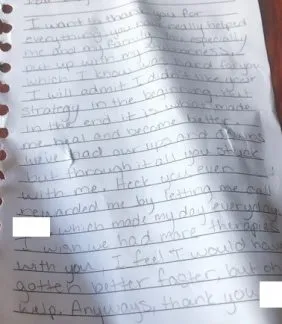 I want to thank you for
everything you have really helped
me and my family. Especially
put up with my
which I know was hard for you
I will admit I didn't like your
strategy in the beginning but
in the end it is what made
me heal and become better.
We've had our ups and downs
but through it all you stuck
with me. Heck you even
rewarded me by letting me call
which made my day everyday.
I wish we had more therapies
with you. I feel I would have
gotten better faster, but oh
whelp. Anyways, thank you